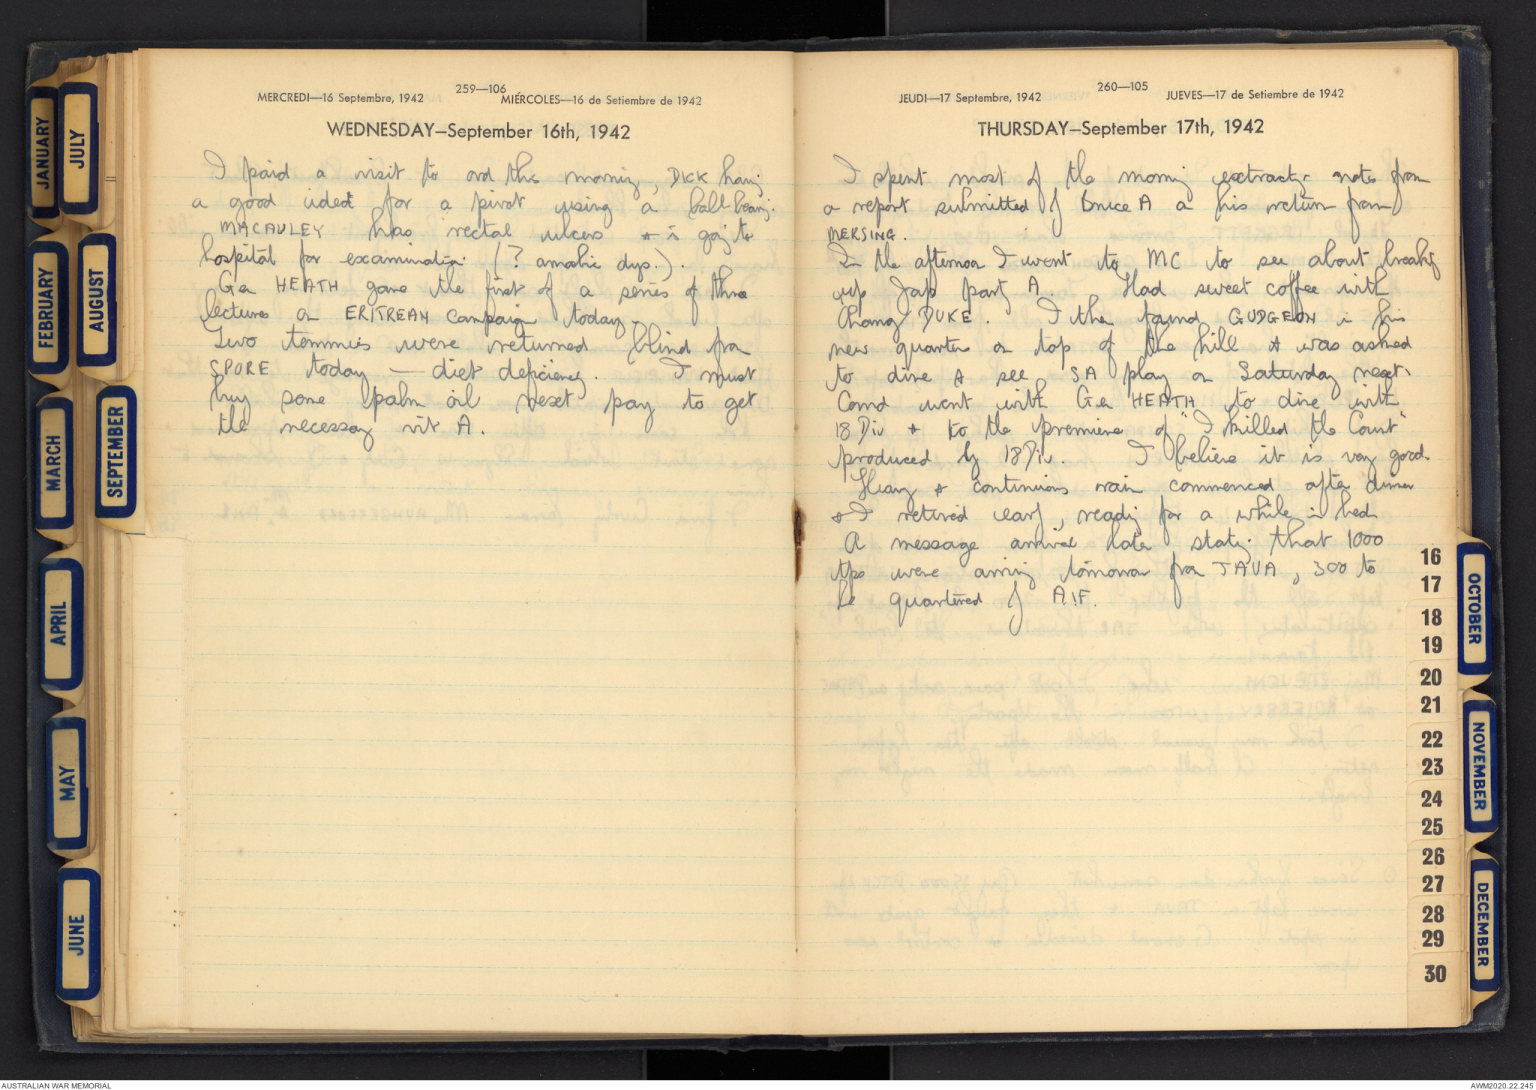 259—106
MERCREDI—16 Septembre, 1942 MIÉRCOLES—16 de Setiembre de 1942
WEDNESDAY—September 16th, 1942
I paid a visit to ord this morning, DICK having
a good idea for a pivot using a ball-bearing.
MACAULEY has rectal ulcers & is going to
hospital for examination (? amoebic dys.).
Gen HEATH gave the first of a series of three
lectures on ERITREAN Campaign today.
Two tommies were returned blind from
SPORE today — diet deficiency. I must
buy some palm oil next pay to get
the necessary vit A.
260—105
JEUDI—17 Septembre, 1942 JUEVES—17 de Setiembre de 1942
THURSDAY—September 17th, 1942
I spent most of the morning extracting notes from
a report submitted by Bruce A on his return from
MERSING.
In the afternoon I went to MC to see about breaking
up Jap part A. Had sweet coffee with
Chang/DUKE. I then found GUDGEON in his
new quarters on top of the hill & was asked
to dine & see SA play on Saturday next.
Comd went with Gen HEATH to dine with
18 Div & to the premiere of "I killed the Count"
produced by 18 Div. I believe it is very good.
Heavy & continuous rain commenced after dinner
& I retired early, reading for a while in bed.
A message arrived later stating that 1000
tps were arriving tomorrow from JAVA, 300 to
be quartered by AIF.
JANUARY
FEBRUARY
MARCH
APRIL
MAY
JUNE
JULY
AUGUST
SEPTEMBER
OCTOBER
NOVEMBER
DECEMBER
16
17
18
19
20
21
22
23
24
25
26
27
28
29
30
AUSTRALIAN WAR MEMORIAL
AWM2020.22.245